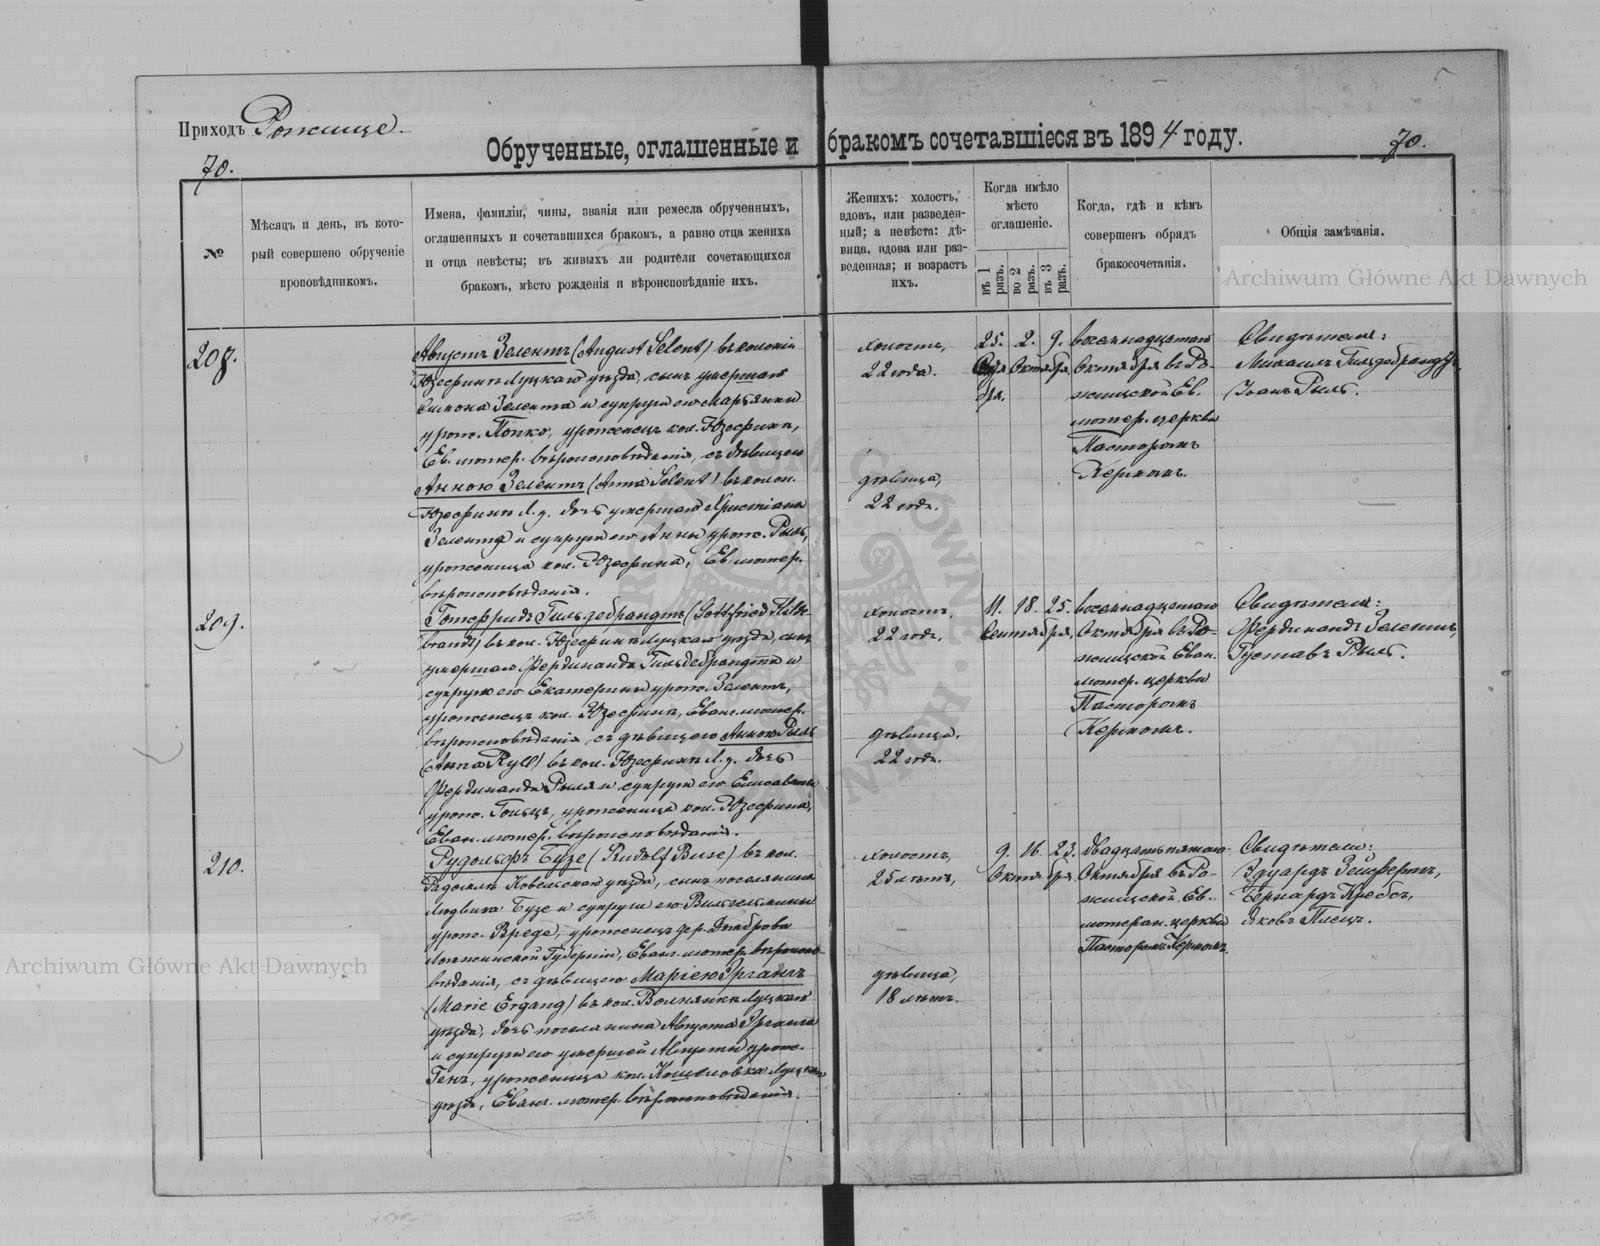 Приходъ Рожище.
70.
Обрученные, оглашенные и бракомъ сочетавшіеся въ 1894 году.
70.
№
Мѣсяцъ и день, въ кото-
рый совершено обрученіе
проповѣдникомъ.
Имена, фамиліи, чины, званія или ремесла обрученныхъ,
оглашенныхъ и сочетавшихся бракомъ, а равно отца жениха
и отца невѣсты; въ живыхъ ли родители сочетающихся
бракомъ, мѣсто рожденія и вѣроисповѣданіе ихъ.
Женихъ: холостъ,
вдовъ, или разведен-
ный; а невѣста: дѣ-
вица, вдова или раз-
веденная; и возрастъ
ихъ.
Когда имѣло
мѣсто
оглашеніе.
въ 1 разъ.
во 2 разъ.
въ 3 разъ.
Когда, гдѣ и кѣмъ
совершенъ обрядъ
бракосочетанія.
Общія замѣчанія.
208.
Августъ Зелентъ (August Selent) въ колоніи
Юзефинъ Луцкаго уѣзда, сынъ умершаго
Симона Зелента и супруги его Марьянны
урож. Попко, уроженецъ кол. Юзефинъ,
Ев. лютер. вѣроисповѣданія, съ дѣвицею
Анною Зелентъ (Anna Selent) въ колон.
Юзефинъ Л. у. дочь умершаго Христіана
Зелента и супруги его Анны урож. Рыль,
уроженица кол. Юзефина, Ев. лютер.
вѣроисповѣданія.
холостъ,
22 года.
дѣвица,
22 года.
25. 2. 9.
Сентя Октября.
бря.
восемнадцатаго
Октября въ Ро-
жищской Ев.
лютер. церкви
Пасторомъ
Кермомъ.
Свидѣтели:
Михаилъ Гильдебрандтъ,
Іоанъ Рыль.
209.
Готфридъ Гильдебрандтъ (Gottfried Hilde-
brandt) въ кол. Юзефинъ Луцкаго уѣзда, сынъ
умершаго Фердинанда Гильдебрандта и
супруги его Екатерины урож. Зелентъ,
уроженецъ кол. Юзефинъ, Еван. лютер.
вѣроисповѣданія, съ дѣвицею Анною Рыль
(Anna Ryll) въ кол. Юзефинъ Л. у. дочь
Фердинанда Рыля и супруги его Елисаветы
урож. Гольцъ, уроженица кол. Юзефина,
Еван. лютер. вѣроисповѣданія.
холостъ,
22 года.
дѣвица,
22 года.
11. 18. 25.
Сентября.
восемнадцатаго
Октября въ Ро-
жищской Еван.
лютер. церкви
Пасторомъ
Кермомъ.
Свидѣтели:
Фердинандъ Зелентъ,
Густавъ Рыль.
210.
Рудольфъ Бузе (Rudolf Buse) въ кол.
Радомль Ковельскаго уѣзда, сынъ поселянина
Людвига Бузе и супруги его Вильгельмины
урож. Вреде, уроженецъ дер. Домброва
Ломжинской Губерніи, Еван. лютер. вѣроиспо-
вѣданія, съ дѣвицею Маріею Эргангъ
(Marie Ergang) въ кол. Волнянка Луцкаго
уѣзда, дочь поселянина Августа Эрганга
и супруги его умершей Августы урож.
Генъ, уроженица кол. Кошеловка Луцкаго
уѣзда, Еван. лютер. вѣроисповѣданія.
холостъ,
25 лѣтъ,
дѣвица,
18 лѣтъ.
9. 16. 23.
Октября
двадцать пятаго
Октября въ Ро-
жищской Ев.
лютеран. церкви
Пасторомъ Кермомъ.
Свидѣтели:
Эдуардъ Зейфертъ,
Бернардъ Кребсъ,
Яковъ Плецъ.
Archiwum Główne Akt Dawnych
Archiwum Główne Akt Dawnych